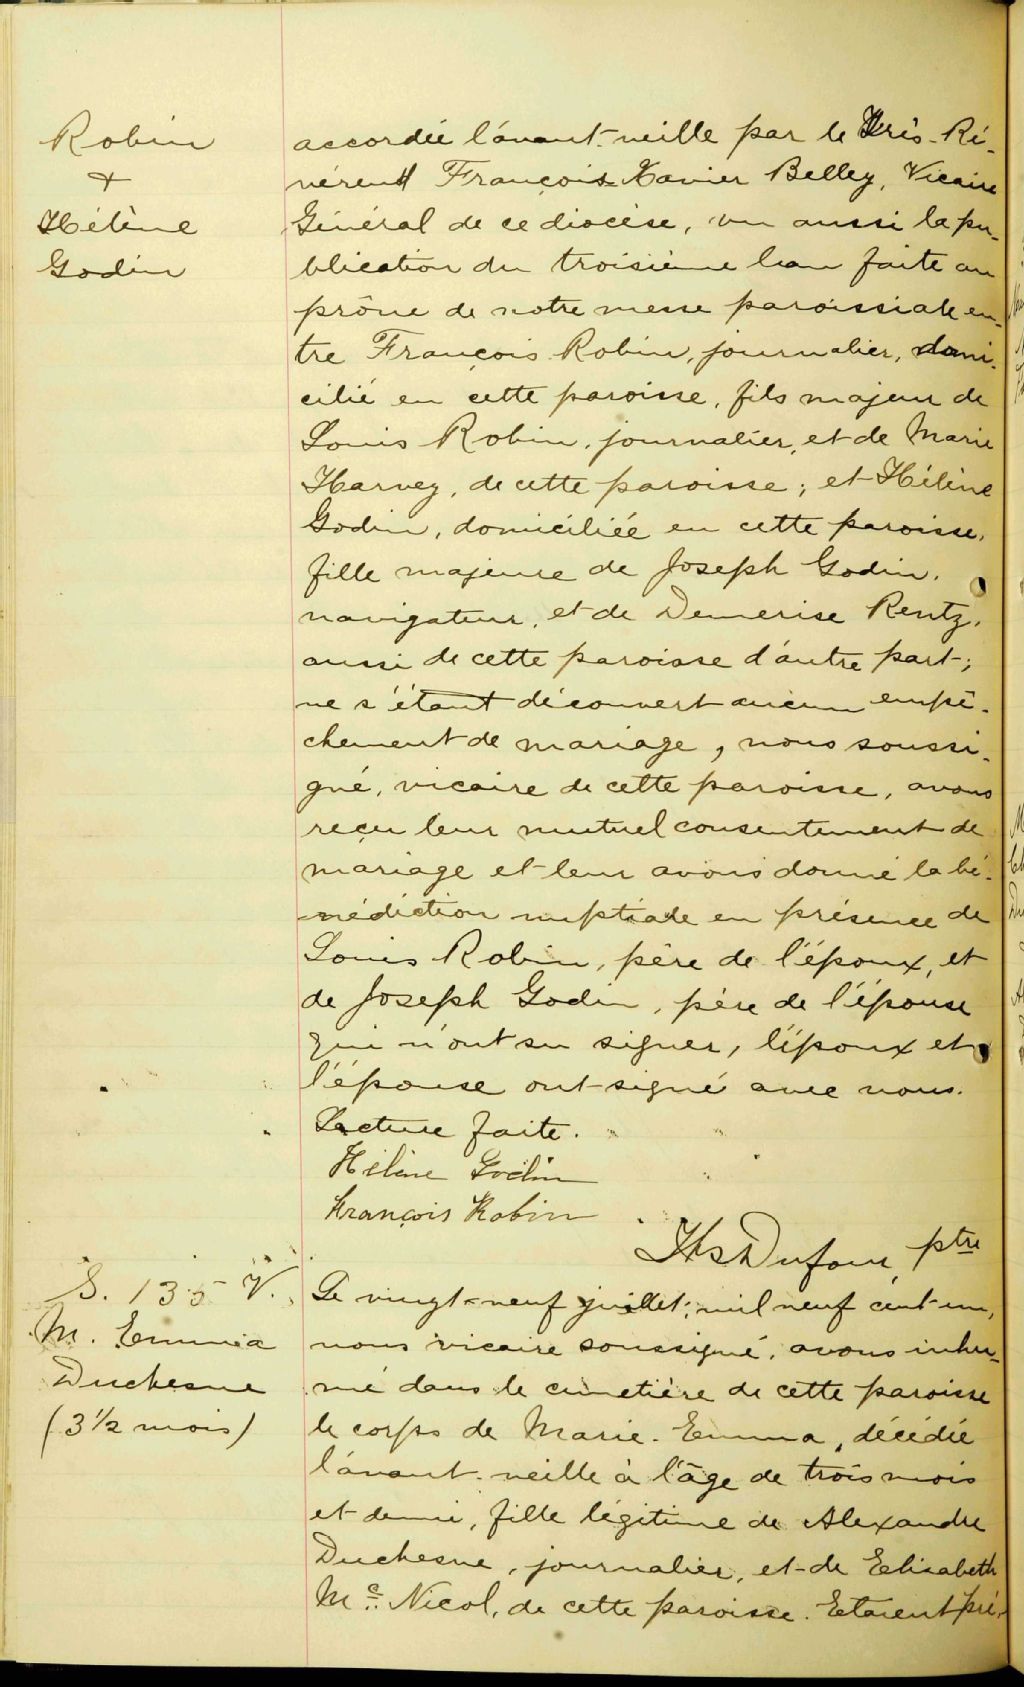 Robin
&
Hélène
Godin
accordée l'avant-veille par le Très-Ré-
vérend François-Xavier Belley, Vicaire
Général de ce diocèse, vu aussi la pu-
blication du troisième ban faite au
prône de notre messe paroissiale en-
tre François Robin, journalier, domi-
cilié en cette paroisse, fils majeur de
Louis Robin, journalier, et de Marie
Harvey, de cette paroisse; et Hélène
Godin, domiciliée en cette paroisse,
fille majeure de Joseph Godin,
navigateur, et de Demerise Rentz,
aussi de cette paroisse d'autre part;
ne s'étant découvert aucun empê-
chement de mariage, nous soussi-
gné, vicaire de cette paroisse, avons
reçu leur mutuel consentement de
mariage et leur avons donné la bé-
nédiction nuptiale en présence de
Louis Robin, père de l'époux, et
de Joseph Godin, père de l'épouse
qui n'ont su signer, l'époux et
l'épouse ont signé avec nous.
Lecture faite.
Hélène Godin
François Robin
Ths Dufour, ptre
S. 135 V.
M. Emma
Duchesne
(3 1/2 mois)
Le vingt-neuf juillet, mil neuf cent-un,
nous vicaire soussigné, avons inhu-
mé dans le cimetière de cette paroisse
le corps de Marie-Emma, décédée
l'avant-veille à l'âge de trois mois
et demi, fille légitime de Alexandre
Duchesne, journalier, et de Elisabeth
Mc Nicol, de cette paroisse. Etaient pré-